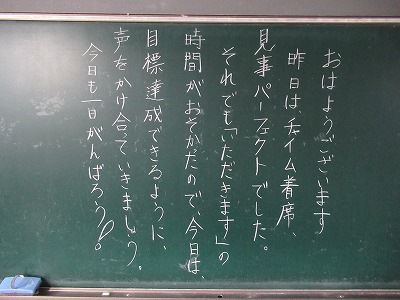 おはようございます
昨日は、チャイム着席、
見事パーフェクトでした。
それでも「いただきます」の
時間がおそかたので、今日は、
目標達成できるように、
声をかけ合っていきましょう。
今日も一日がんばろう!!